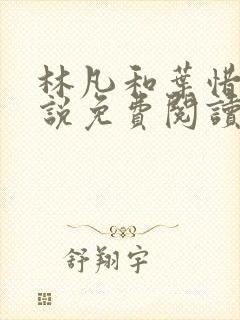 林凡和葉惜
說免費閱讀
舒翔宇